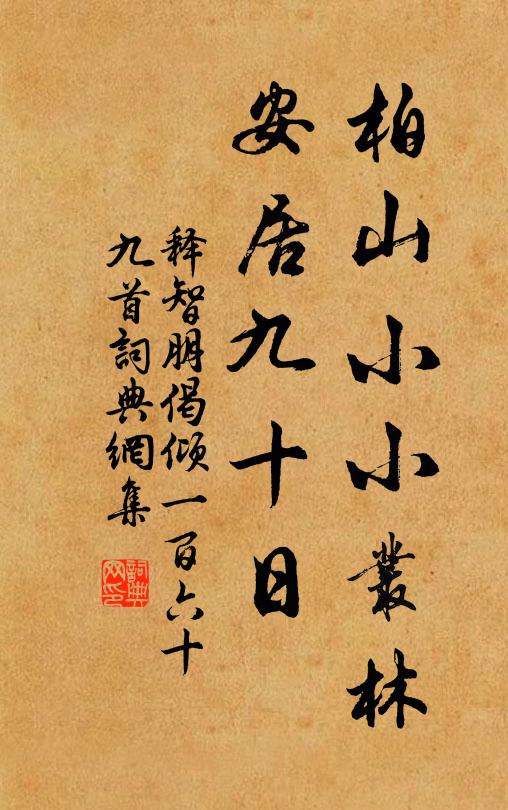 柏山小小叢林
安居九十日
释智朋偈倾一百六十
九首詞典網集
詞典網印